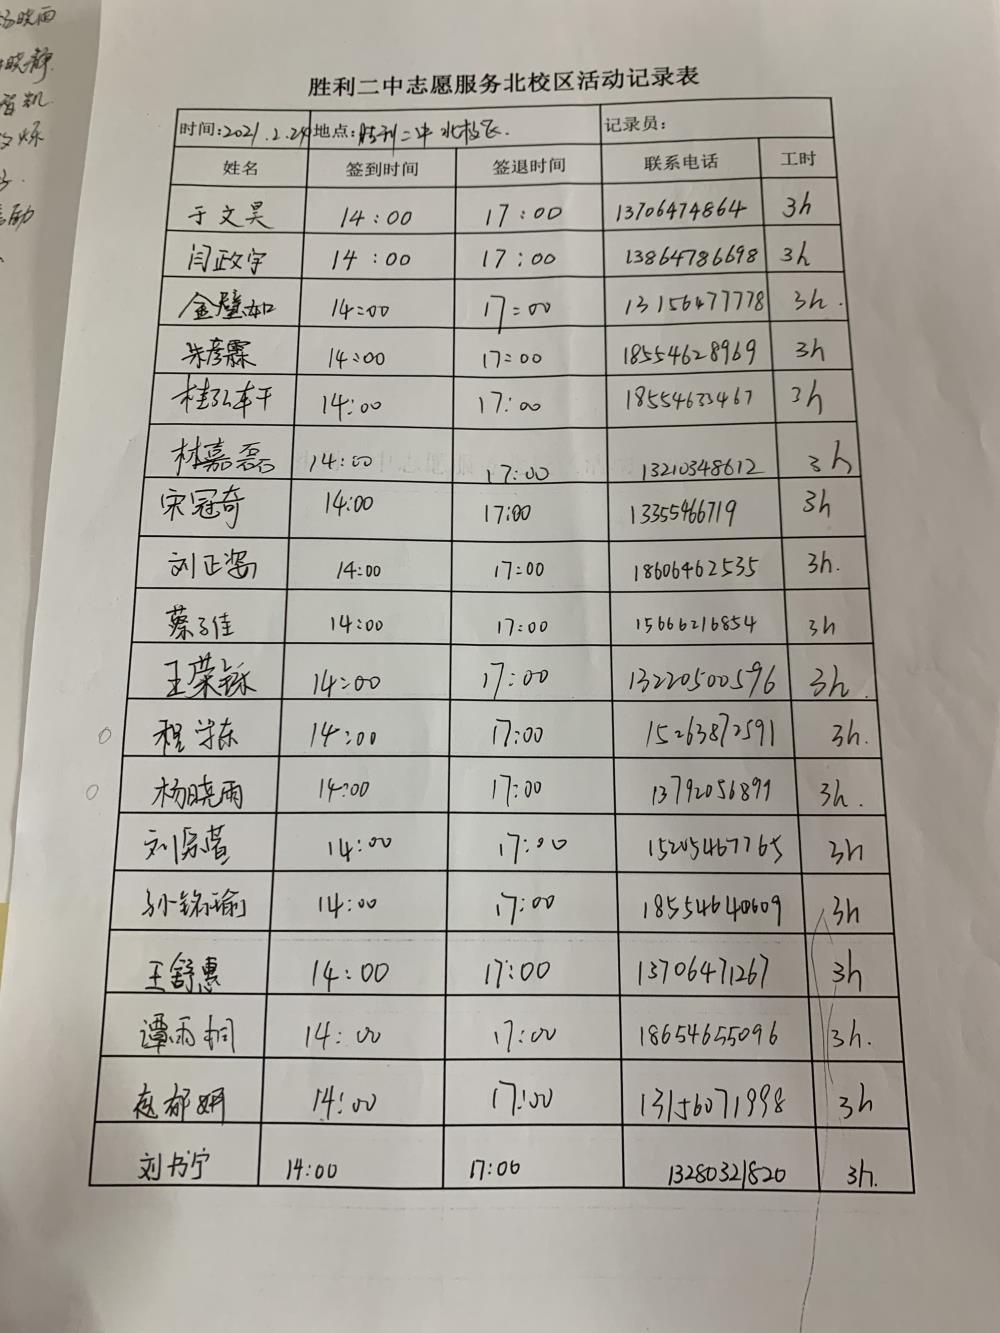 杨晓雨
晓静
胜利二中志愿服务北校区活动记录表
时间:2021.2.24 地点:胜利二中北校区. 记录员:
姓名 签到时间 签退时间 联系电话 工时
于文昊 14:00 17:00 13706474864 3h
闫政宇 14:00 17:00 13864786698 3h
金璧如 14:00 17:00 13156477778 3h.
朱彦霖 14:00 17:00 18554628969 3h
14:00 17:00 18554633467 3h
林嘉磊 14:00 17:00 13210348612 3h
宋冠奇 14:00 17:00 13355466719 3h
刘正 14:00 17:00 18606462535 3h.
蔡子佳 14:00 17:00 15666216854 3h
王荣铄 14:00 17:00 13220500596 3h.
程守东 14:00 17:00 15263872591 3h.
杨晓雨 14:00 17:00 13792056899 3h.
刘 14:00 17:00 15205467765 3h
孙铭瑜 14:00 17:00 18554640609 3h
王舒惠 14:00 17:00 13706471267 3h
谭雨桐 14:00 17:00 18654655096 3h.
赵郁妍 14:00 17:00 13156071998 3h
刘书宁 14:00 17:00 13280321820 3h.